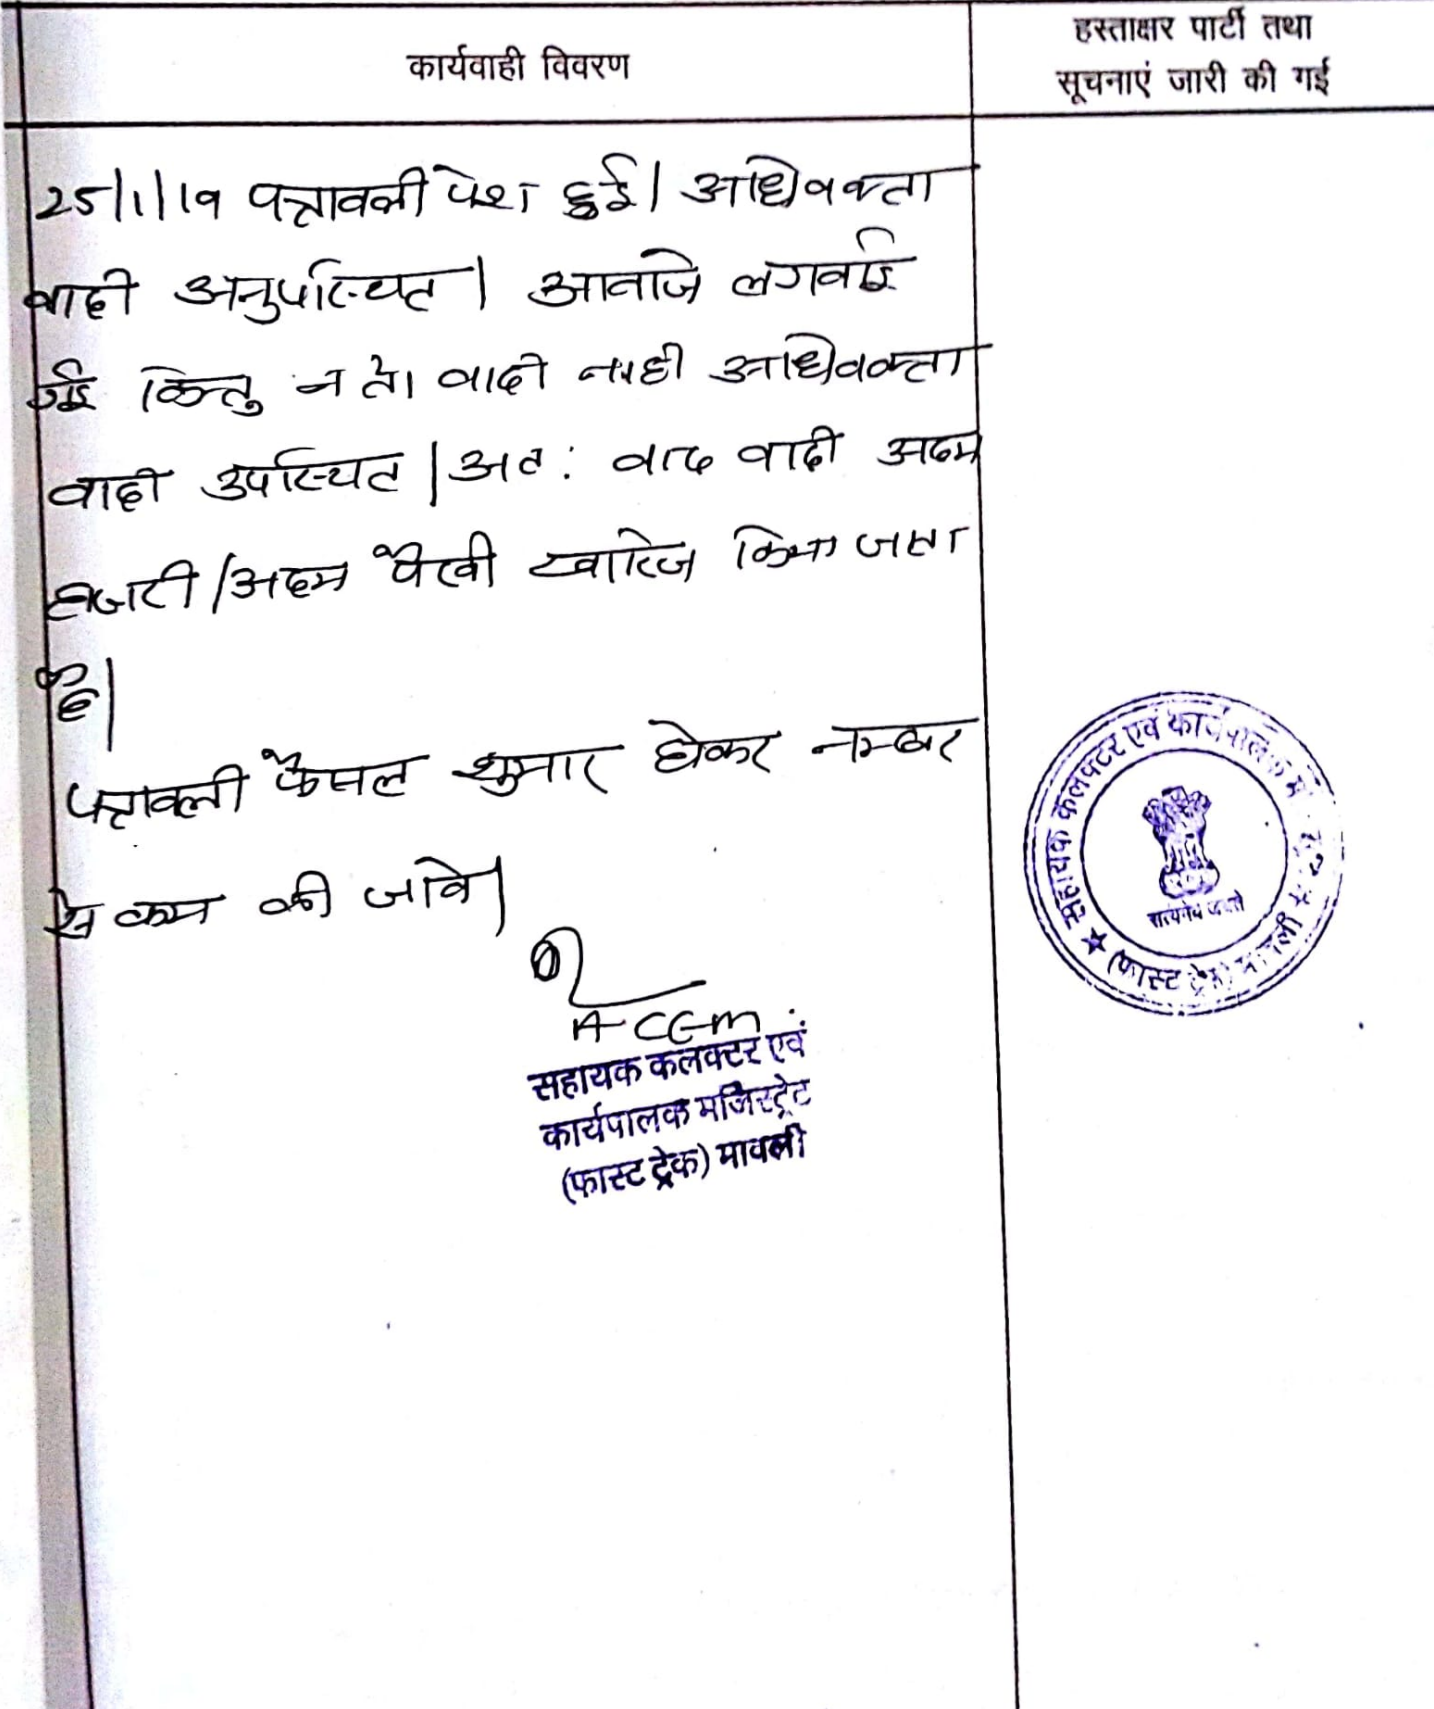 कार्यवाही विवरण
हस्ताक्षर पार्टी तथा
सूचनाएं जारी की गई
25/1/19 पत्रावली पेश हुई। अधिवक्ता
वादी अनुपस्थित। आवाजे लगवाई
गई किन्तु न तो वादी नाही अधिवक्ता
वादी उपस्थित। अत: वाद वादी अदम
हाजरी/अदम पैरवी खारिज किया जाता
है।
पत्रावली फैसल शुमार होकर नम्बर
से कम की जावे।
ACEM
सहायक कलक्टर एवं
कार्यपालक मजिस्ट्रेट
(फास्ट ट्रेक) मावली
सहायक कलक्टर एवं कार्यपालक
सत्यमेव जयते
(फास्ट ट्रेक) मावली